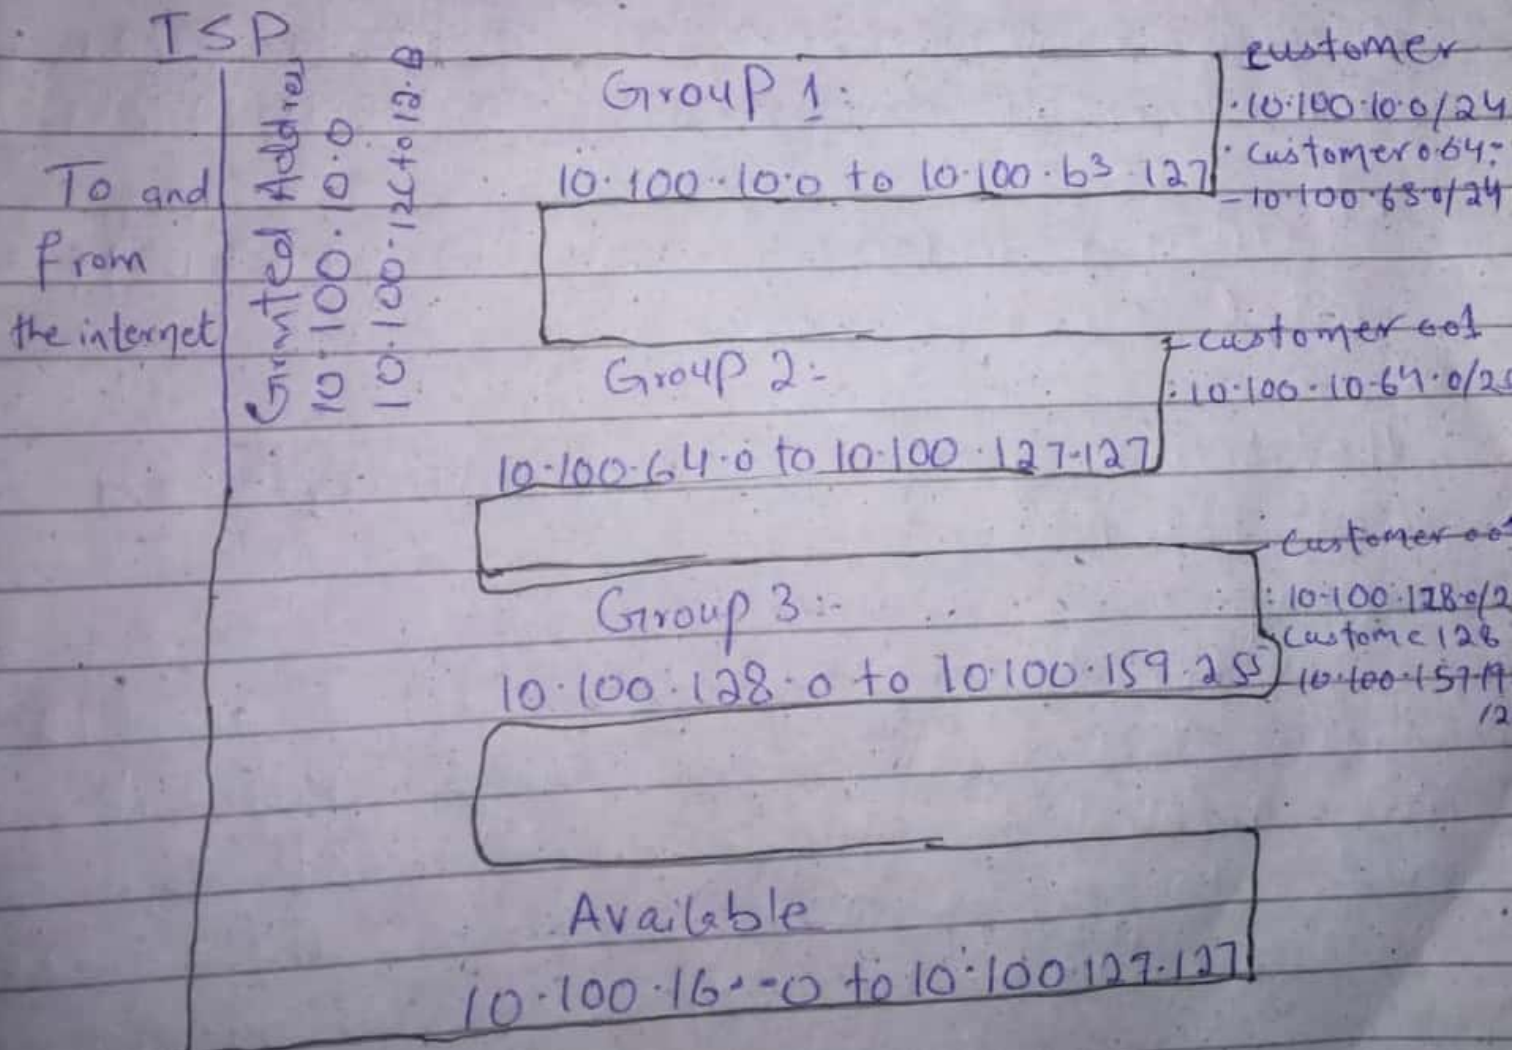 ISP
To and
from
the internet
Granted Addres
10.100.10.0
Group 1:
10.100.10.0 to 10.100.63.127
customer
10.100.10.0/24
Customer 064:
10.100.63.0/24
Group 2:-
10.100.64.0 to 10.100.127.127
customer 001
10.100.10.64.0/2
Group 3:-
10.100.128.0 to 10.100.159.255
customer 001
10.100.128.0/2
Custome 128
Available
to 10.100.127.127